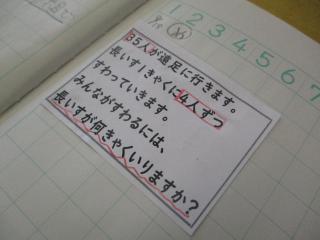 1 2 3 4 5 6 7
35人が遠足に行きます。
長いす1きゃくに4人ずつ
すわっていきます。
みんながすわるには、
長いすが何きゃくいりますか?